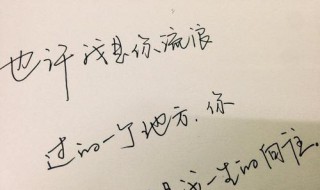 也许我想你流浪
过的一个地方.你
是我一生的向往.